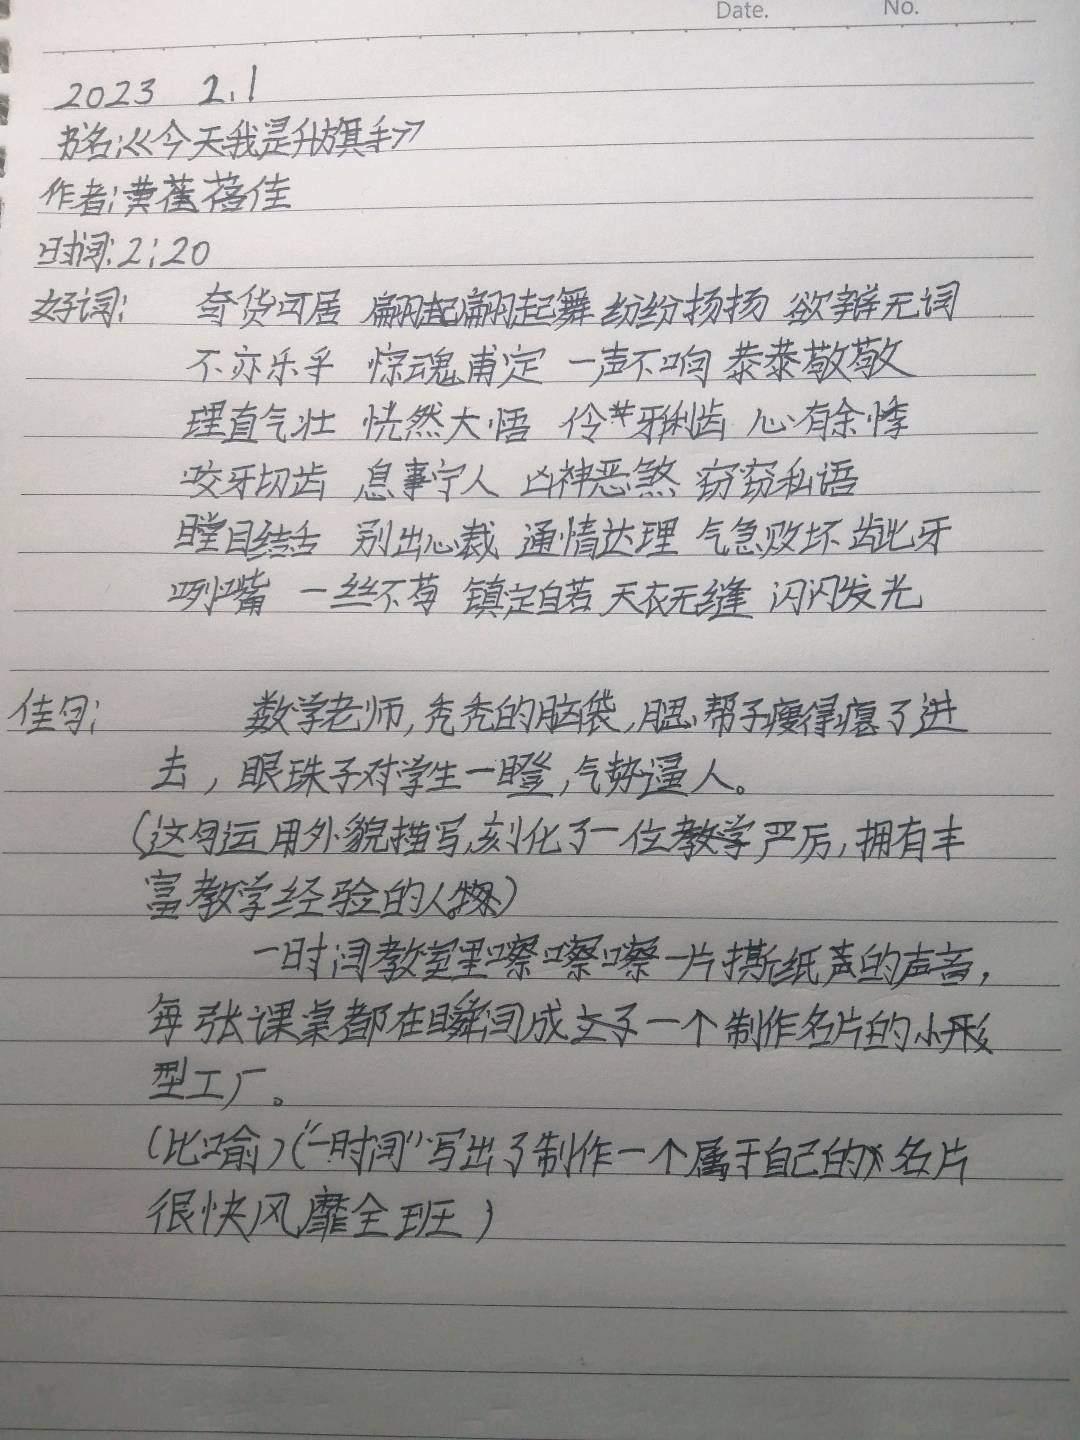 Date. No.
2023 2.1
书名:《今天我是升旗手》
作者:黄蓓佳
时间:2:20
好词: 奇货可居 翩翩起舞 纷纷扬扬 欲辩无词
不亦乐乎 惊魂甫定 一声不响 恭恭敬敬
理直气壮 恍然大悟 伶牙俐齿 心有余悸
咬牙切齿 息事宁人 凶神恶煞 窃窃私语
瞠目结舌 别出心裁 通情达理 气急败坏 龇牙
咧嘴 一丝不苟 镇定自若 天衣无缝 闪闪发光
佳句: 数学老师,秃秃的脑袋,腮帮子瘦得瘪了进
去,眼珠子对学生一瞪,气势逼人。
(这句运用外貌描写,刻化了一位教学严厉,拥有丰
富教学经验的人物)
一时间教室里嚓嚓嚓一片撕纸声的声音,
每张课桌都在瞬间成了一个制作名片的小
型工厂。
(比喻)("一时间"写出了制作一个属于自己的名片
很快风靡全班)